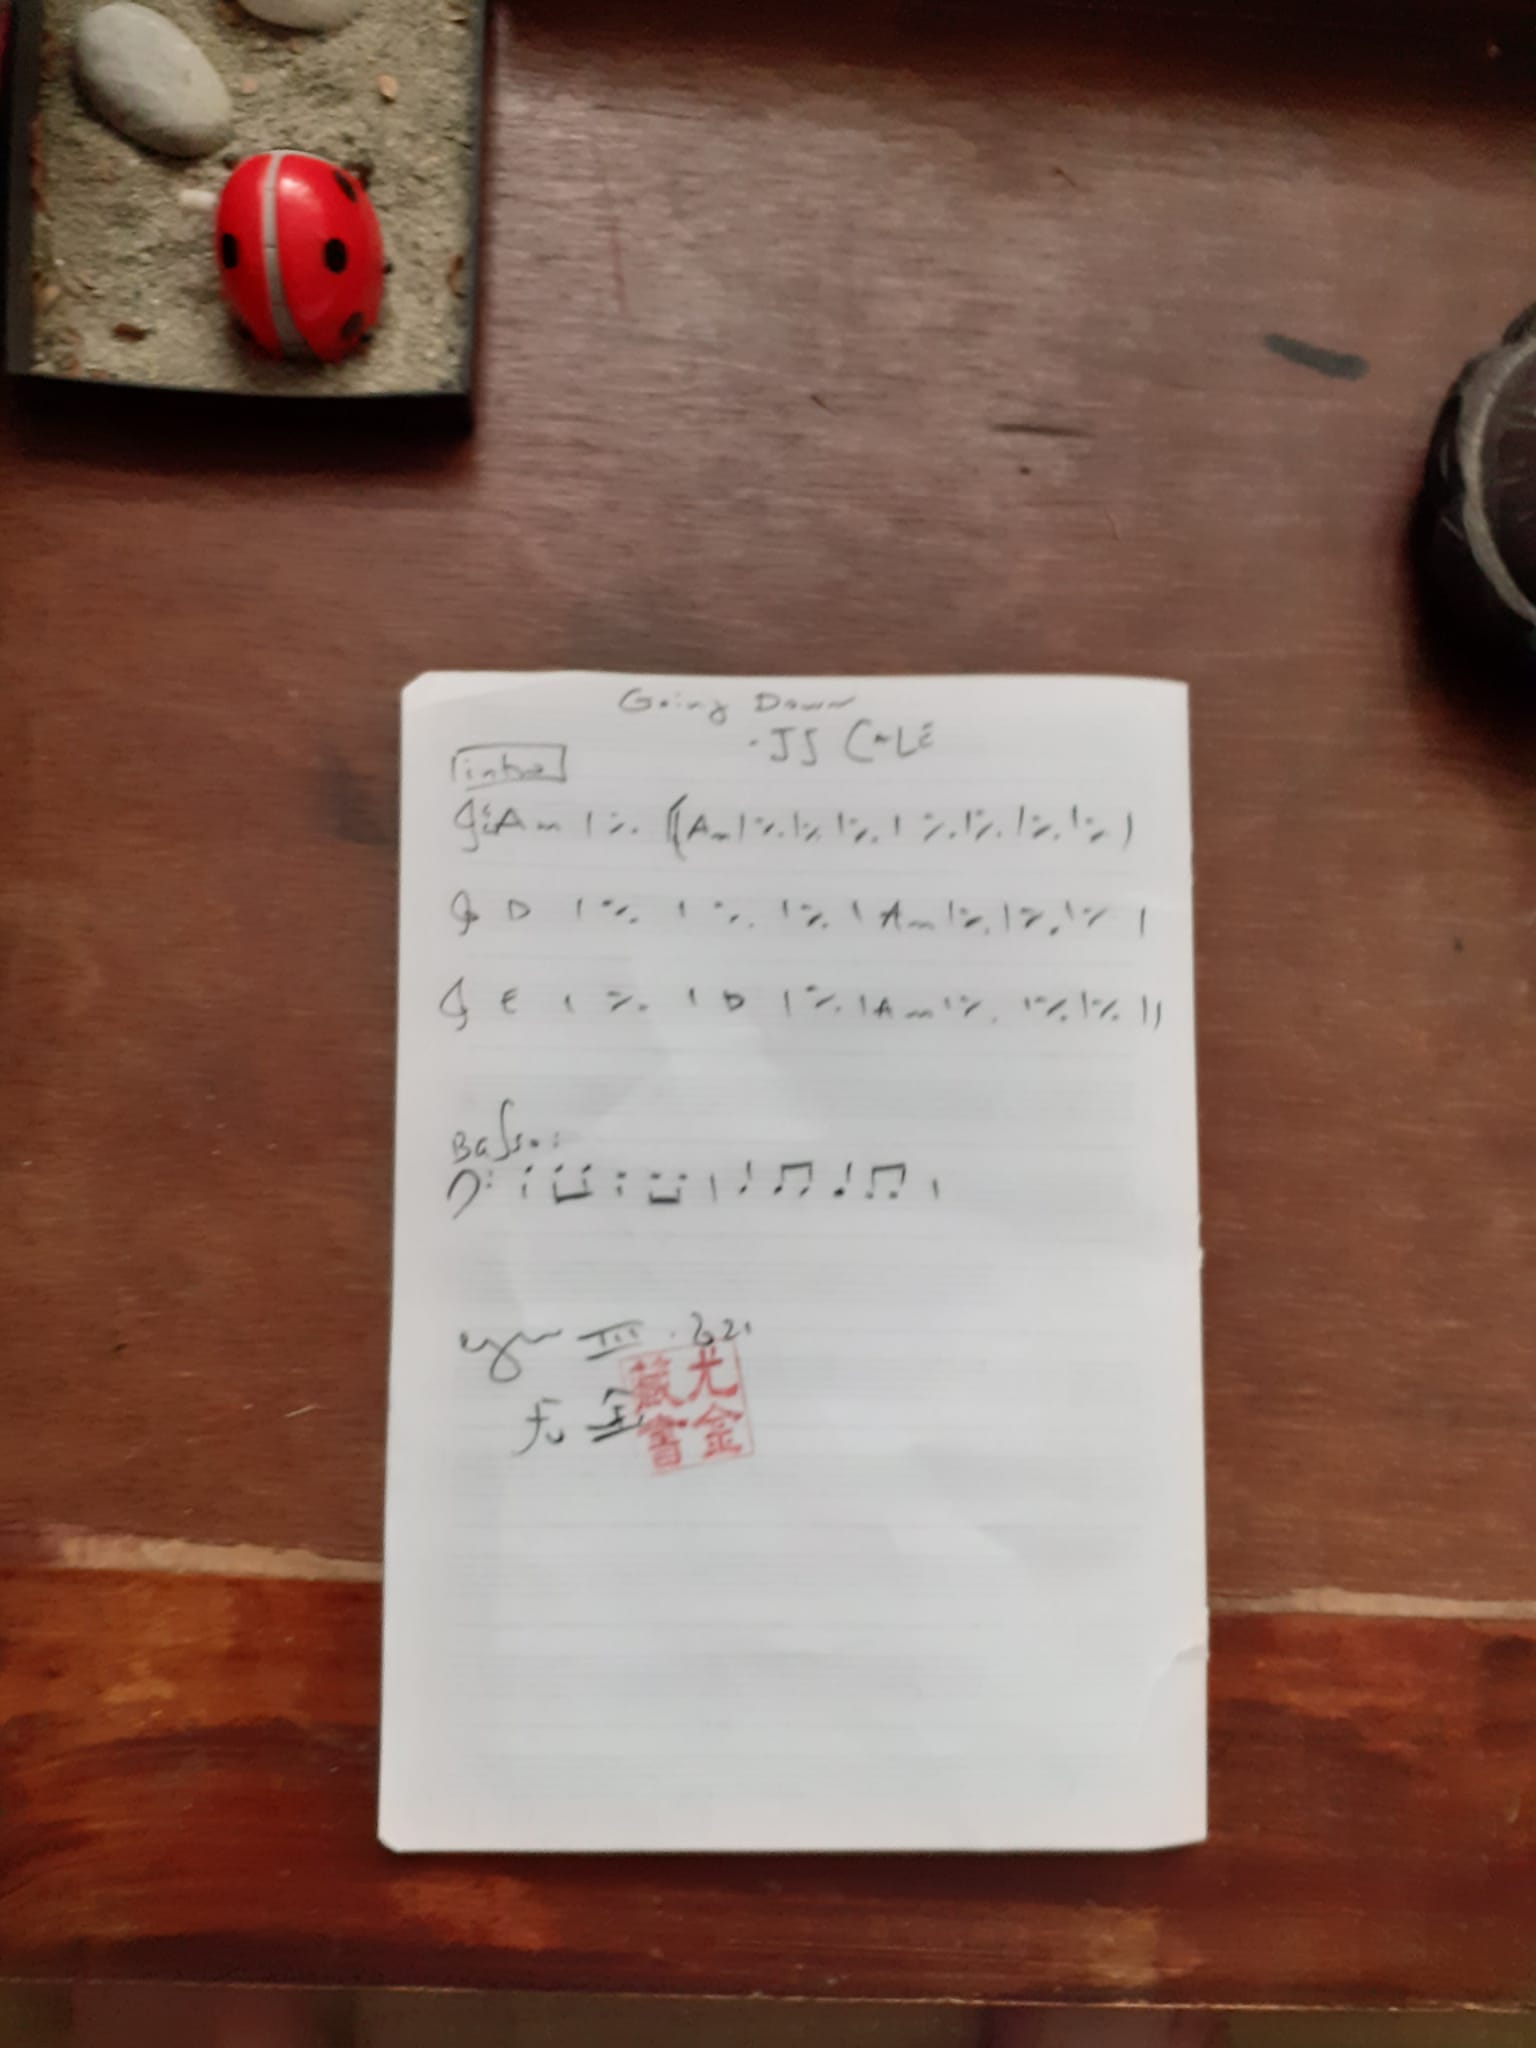 Going Down
- JJ CALE
intro
Am | ٪ || Am | ٪ | ٪ | ٪ | ٪ | ٪ | ٪ | ٪ |
D | ٪ | ٪ | ٪ | Am | ٪ | ٪ | ٪ |
E | ٪ | D | ٪ | Am | ٪ | ٪ | ٪ ||
Basso:
III . 2021
尤金
尤金
藏書